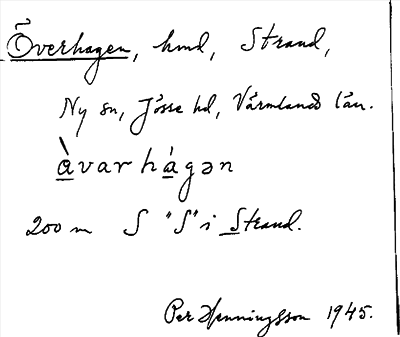 Överhagen, hmd, Strand,
Ny sn, Jösse hd, Värmlands län.
àvar hágən
200 m S "S" i Strand.
Per Henningsson 1945.